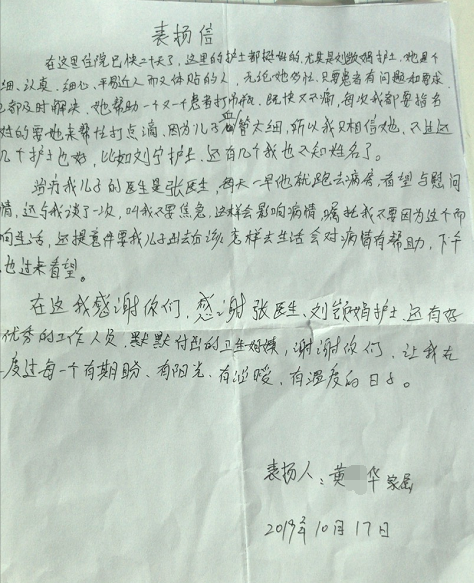 表扬信
在这里住院已快二十天了，这里的护士都挺好的，尤其是刘敏娟护士，她是个
细、认真、细心、平易近人而又体贴的人，无论她多忙，只要患者有问题和要求，
都及时解决，她帮助一个又一个患者打吊瓶，既快又不痛，每次我都要指名
姓的要她来帮忙打点滴，因为儿子血管太细，所以我只相信她，不过这
几个护士也好，比如刘宁护士，还有几个我也不知姓名了。
治疗我儿子的医生是张医生，每天一早他就跑去病房，看望与慰问
情，还与我谈了一次，叫我不要焦急，这样会影响病情，嘱托我不要因为这个而
响生活，还提意件要我儿子出去后该怎样去生活会对病情有帮助，下午
也过来看望。
在这我感谢你们，感谢张医生、刘敏娟护士，还有好
优秀的工作人员，默默付出的卫生妈姨，谢谢你们，让我在
度过每一个有期盼、有阳光、有温暖、有温度的日子。
表扬人：黄 华家属
2019年10月17日